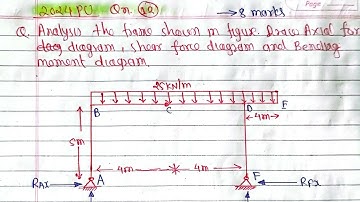 2024 PU Qn. 
→ 8 marks
Page
Q. Analysis the frame shown in figure. Draw Axial for
diagram, shear force diagram and Bending
moment diagram.
25 KN/m
B C D E
5m
4m
4m 4m
RAX A F RFX